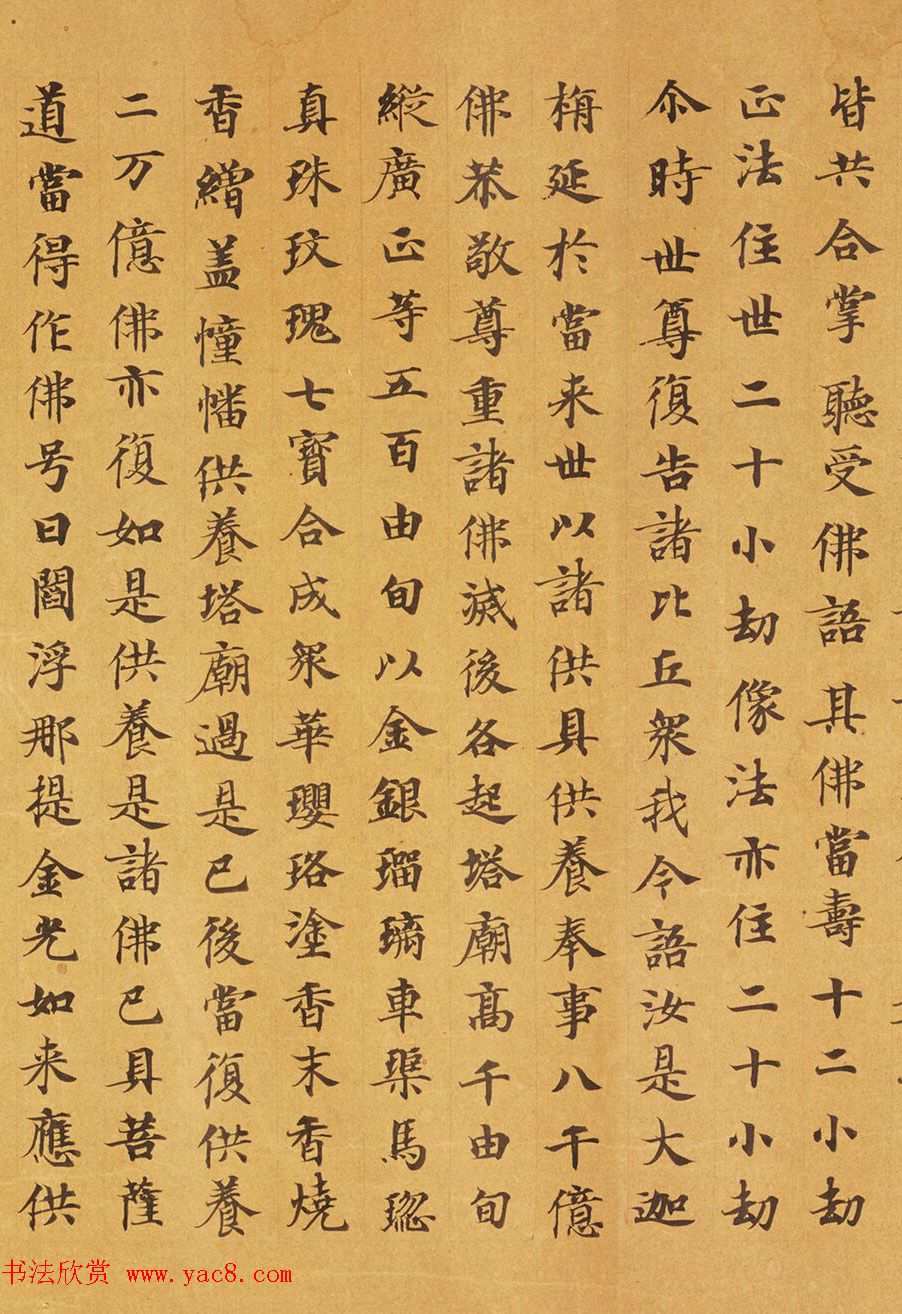 皆共合掌聽受佛語其佛當壽十二小劫
正法住世二十小劫像法亦住二十小劫
尒時世尊復告諸比丘衆我今語汝是大迦
栴延於當来世以諸供具供養奉事八千億
佛恭敬尊重諸佛滅後各起塔廟髙千由旬
縱廣正等五百由旬以金銀瑠璃車璖馬瑙
真珠玫瑰七寳合成衆華瓔珞塗香末香燒
香繒盖幢幡供養塔廟過是已後當復供養
二万億佛亦復如是供養是諸佛已具菩薩
道當得作佛号曰閻浮那提金光如来應供
书法欣赏 www.yac8.com